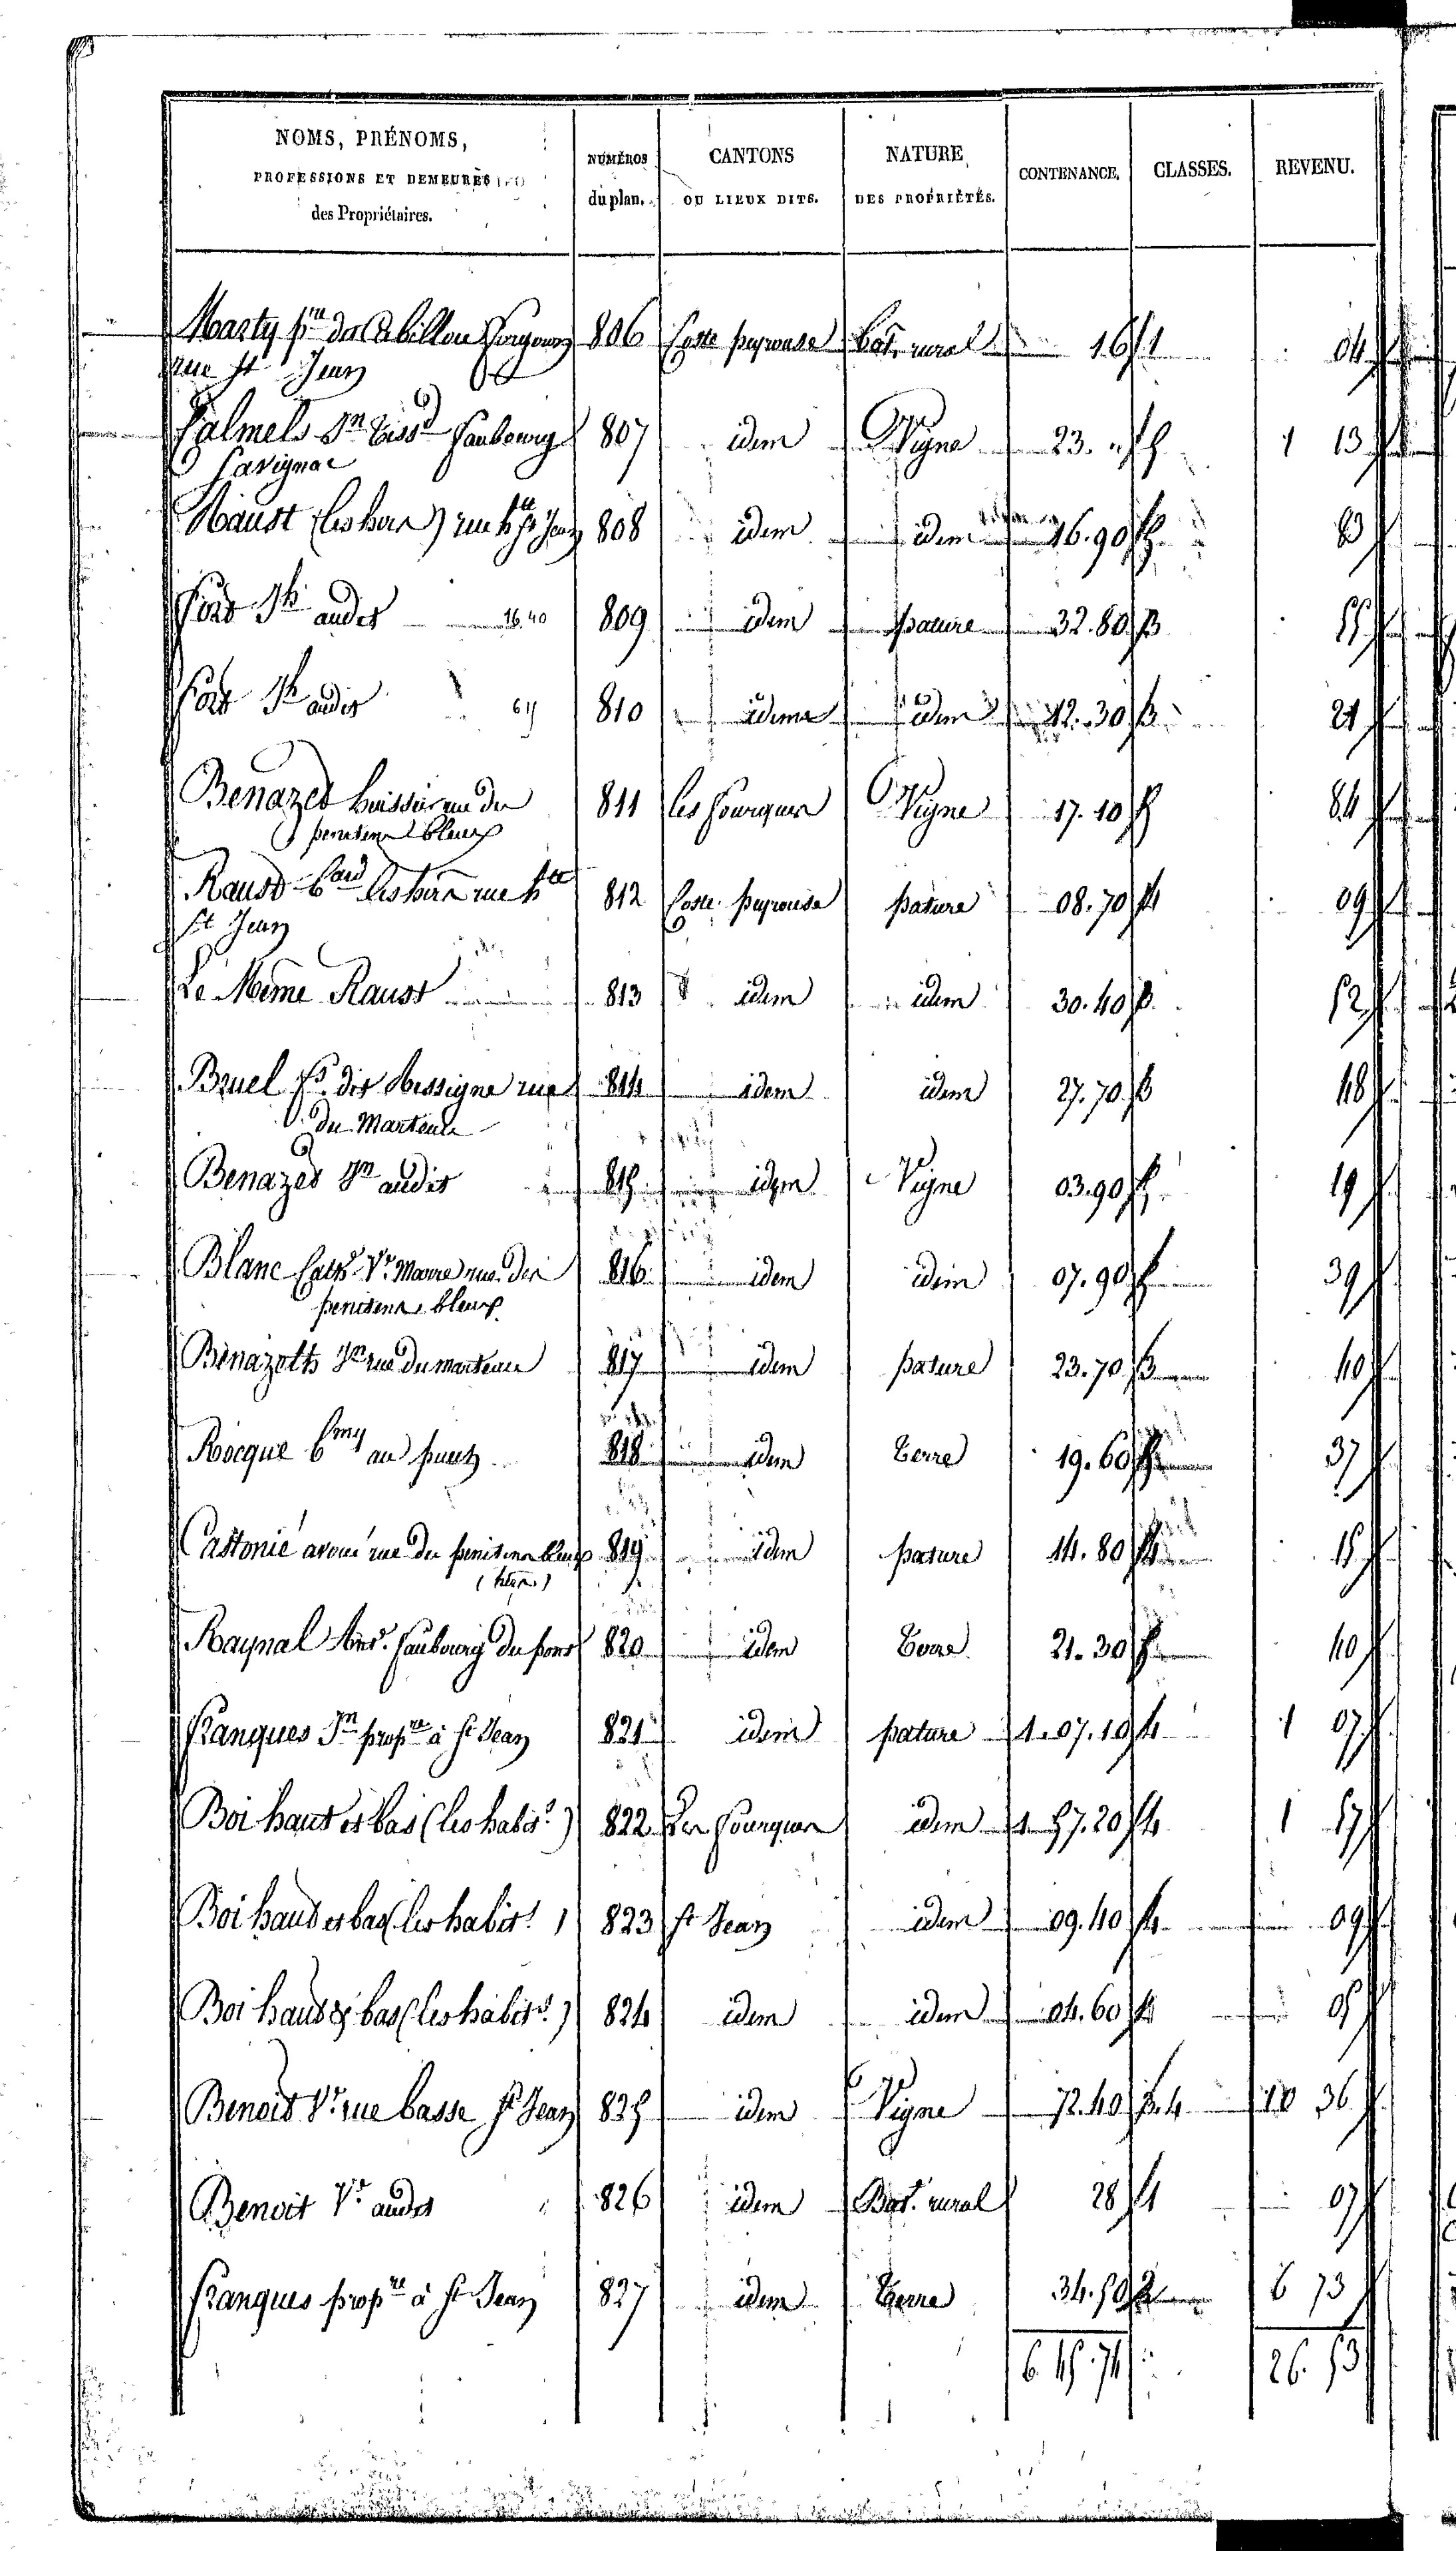 NOMS, PRÉNOMS, PROFESSIONS ET DEMEURES des Propriétaires. NUMÉROS du plan. CANTONS OU LIEUX DITS. NATURE DES PROPRIÉTÉS. CONTENANCE. CLASSES. REVENU.
Marty 806 Coste peyrouse bat. rural 16 1 04
rue St Jean
Calmels Jn faubourg 807 idem Vigne 23. 1 13
Savignac
Raust (les hers) rue hte St Jean 808 idem idem 16.90 83
Jh audit 16.40 809 idem pature 32.80 3 55
Jh audit 810 idem idem 12.30 3 21
Benazet huissier rue des 811 les fourques Vigne 17.10 84
penitens bleux
Raust les hers rue hte 812 Coste peyrouse pature 08.70 4 09
St Jean
Le Même Raust 813 idem idem 30.40 3 52
Bruel dit rue 814 idem idem 27.70 3 48
du Marteau
Benazet Jn audit 815 idem Vigne 03.90 19
Blanc Ve rue des 816 idem idem 07.90 39
penitens bleux
Benazeth rue du marteau 817 idem pature 23.70 3 40
Rocque au puits 818 idem Terre 19.60 37
Castonié avoué rue des penitens bleux 819 idem pature 14.80 4 15
Raynal faubourg du pont 820 idem Terre 21.30 40
Franques Jn propre à St Jean 821 idem pature 1.07.10 4 1 07
Boi haut et bas (les habits) 822 Les fourques idem 1 57.20 4 1 57
Boi haut et bas (les habits) 823 St Jean idem 09.40 4 09
Boi haut et bas (les habits) 824 idem idem 04.60 4 05
Benoit Ve rue basse St Jean 825 idem Vigne 72.40 3.4 10 36
Benoit Ve audit 826 idem Bat. rural 28 1 07
Franques propre à St Jean 827 idem Terre 34.50 2 6 73
6.45.74 26.53